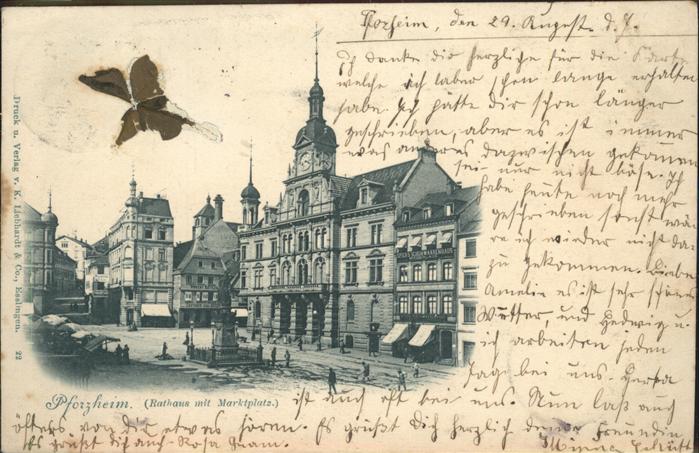 Pforzheim, den 29. August. d. J.
Ich danke dir herzlich für die Karte
welche ich aber schon lange erhalten
habe. Ich hätte dir schon länger
geschrieben, aber es ist immer
etwas anderes dazwischen gekommen
sei nur nicht böse. Ich
habe heute noch mehr
geschrieben sonst wä-
re ich wieder nicht da-
zu gekommen. Liebe
Amelie es ist sehr schönes
Wetter, und Hedwig u.
ich arbeiten jeden
Tag bei uns. Herta
ist auch oft bei uns. Nun laß auch
öfters von dir etwas hören. Es grüßt dich herzlich deine Freundin
Minna
Es grüßt dich auch Rosa
Druck u. Verlag v. K. Liebhardt & Co., Esslingen. 22
Pforzheim. (Rathaus mit Marktplatz.)